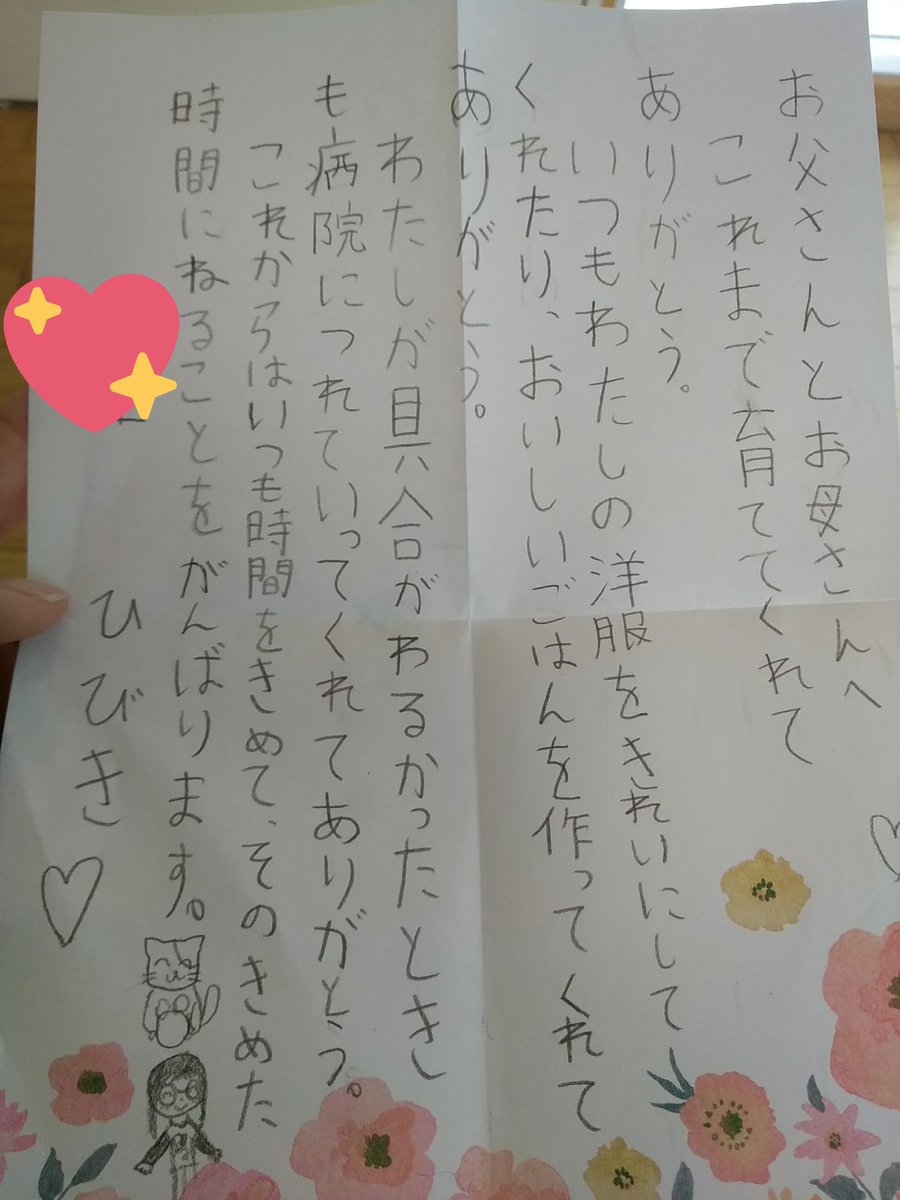 お父さんとお母さんへ
これまで育ててくれて
ありがとう。
いつもわたしの洋服をきれいにして
くれたり、おいしいごはんを作ってくれて
ありがとう。
わたしが具合がわるかったとき
も病院につれていってくれてありがとう。
これからはいつも時間をきめて、そのきめた
時間にねることをがんばります。
ひびき